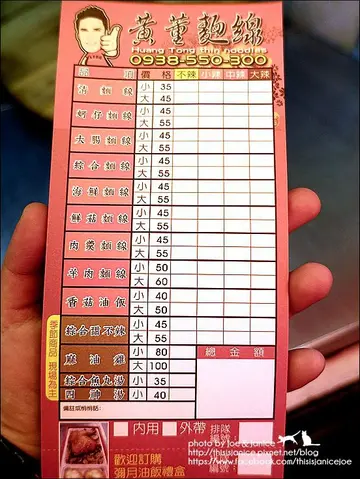 黃董麵線
Huang Tong thin noodles
0938-550-300
品項 價格 不辣 小辣 中辣 大辣
清麵線 小 35
蚵仔麵線 小 45
大 55
大腸麵線 小 45
大 55
綜合麵線 小 45
大 55
海鮮麵線 小 45
大 55
鮮菇麵線 小 45
大 55
肉羹麵線 小 45
大 55
羊肉麵線 小 50
大 60
香菇油飯 小 40
季節商品 現場為主
綜合甜不辣 小 45
大 55
麻油雞 小 80
大 100
綜合魚丸湯 小 35
四神湯 小 40
總金額
內用 外帶 排隊
編號:
歡迎訂購
彌月油飯禮盒
photo by Joe & Janice
http://thisisjanice.pixnet.net/blog
https://www.facebook.com/thisisjanicejoe